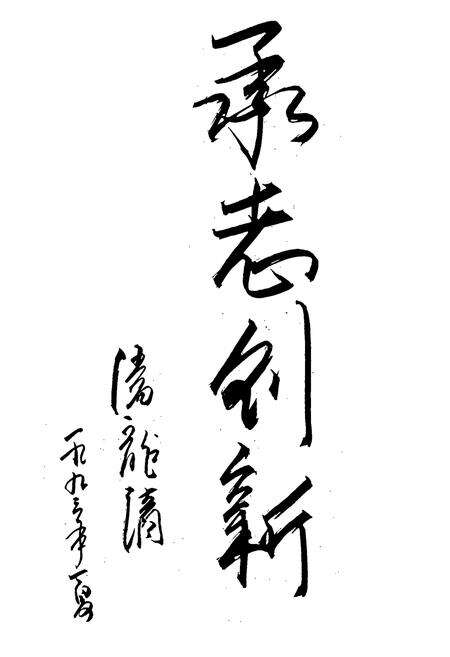 承志创新
潘龙清
一九九三年夏